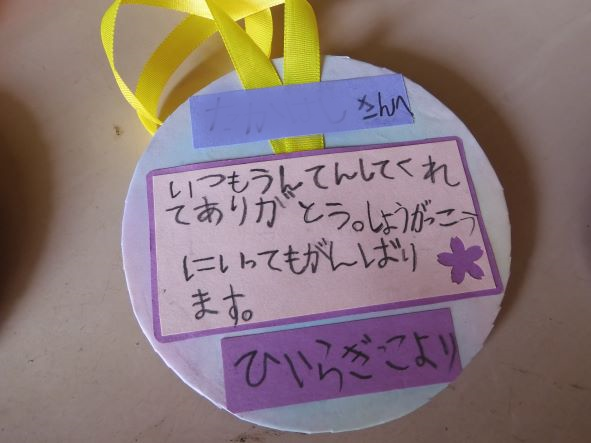 さんへ
いつもうんてんしてくれ
てありがとう。しょうがっこう
にいってもがんばり
ます。
ひいらぎっこより